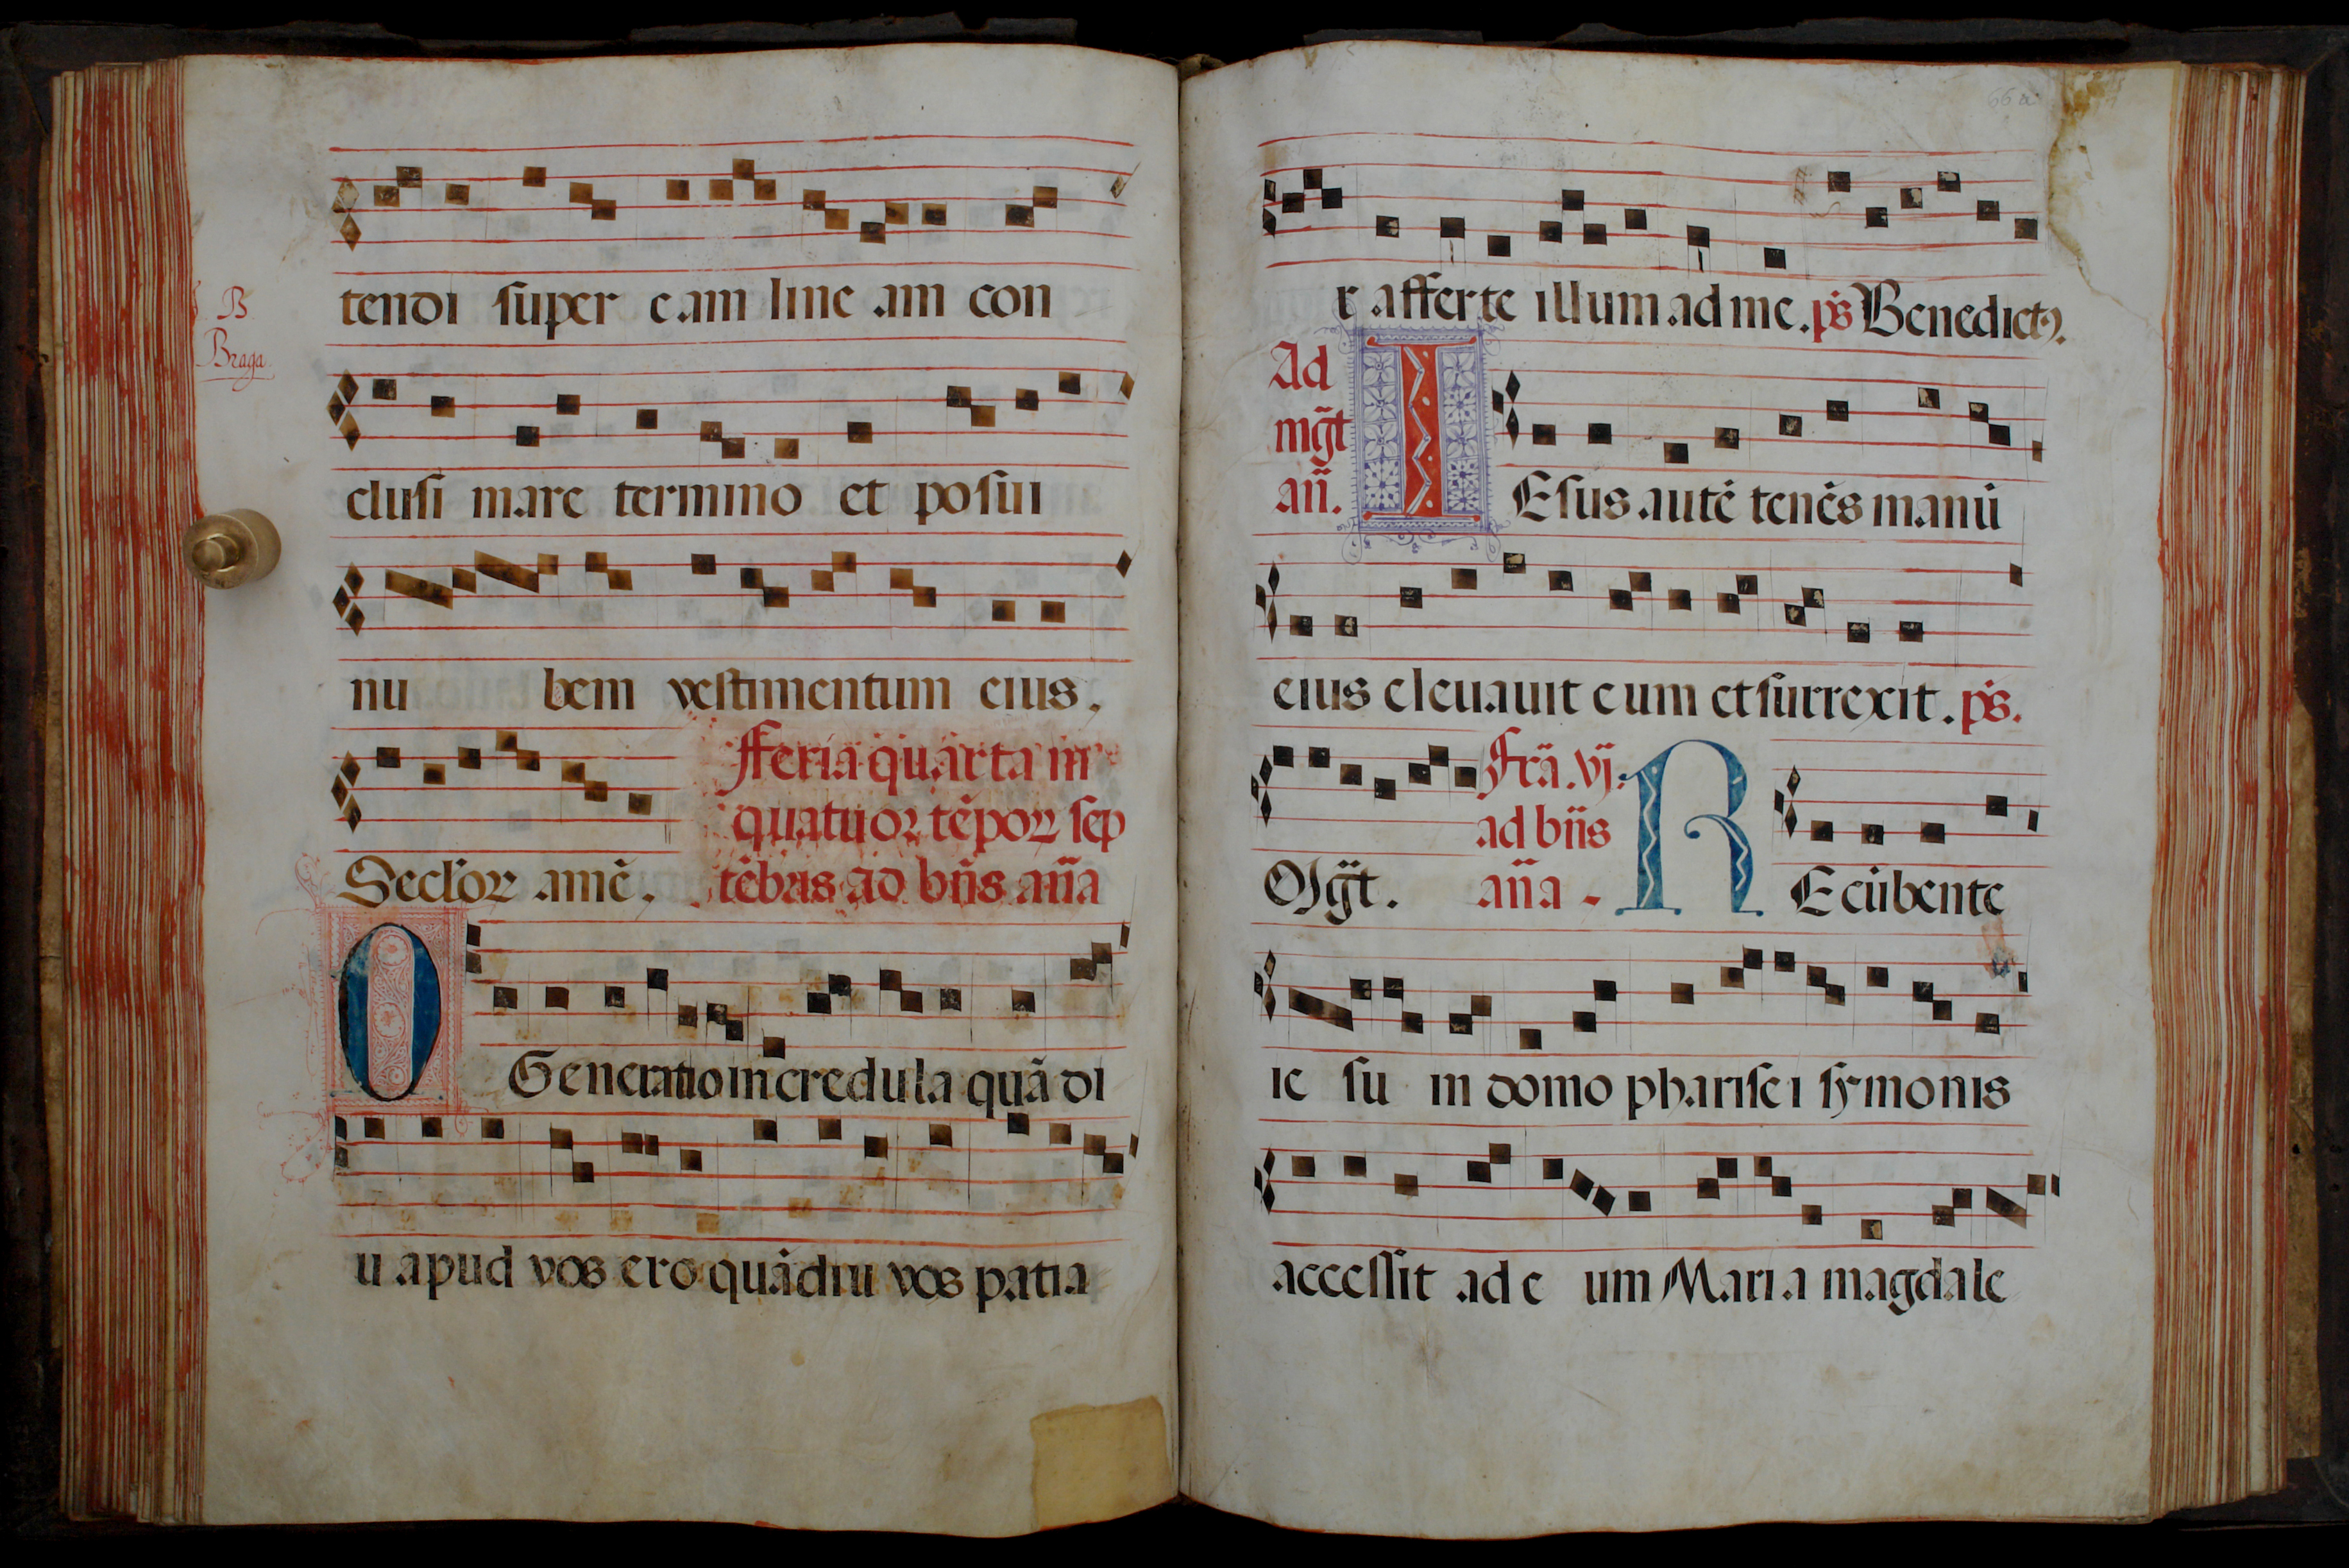 tendi super eam line am con
B
Braga
clusi mare termino et posui
nu bem vestimentum eius.
fferia quarta in
quatuor tẽpoꝝ sep
Secl'oꝝ amẽ. tẽbris ad bñs aña
O Generatio incredula quã di
u apud vos ero quãdiu vos patia
66a
r afferte illum ad me. ps̃ Benedictꝰ.
Ad
mg̃t
añ. IEsus autẽ tenẽs manũ
eius eleuauit eum et surrexit. ps̃.
Frã. vj.
ad bñs
Mg̃t. aña RE cũbente
ie su in domo pharisei symonis
accessit ad e um Maria magdale